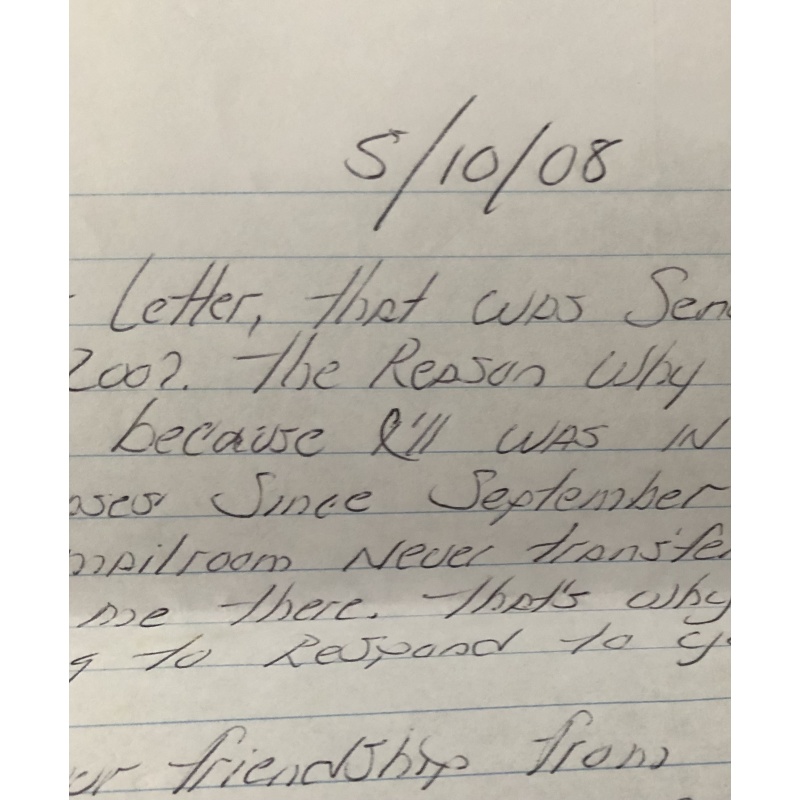 5/10/08
Letter, that was Sen
2007. The Reason Why
because I'll was IN
Since September
mailroom Never transfe
me there. That's why
to Respond to y
friendship from